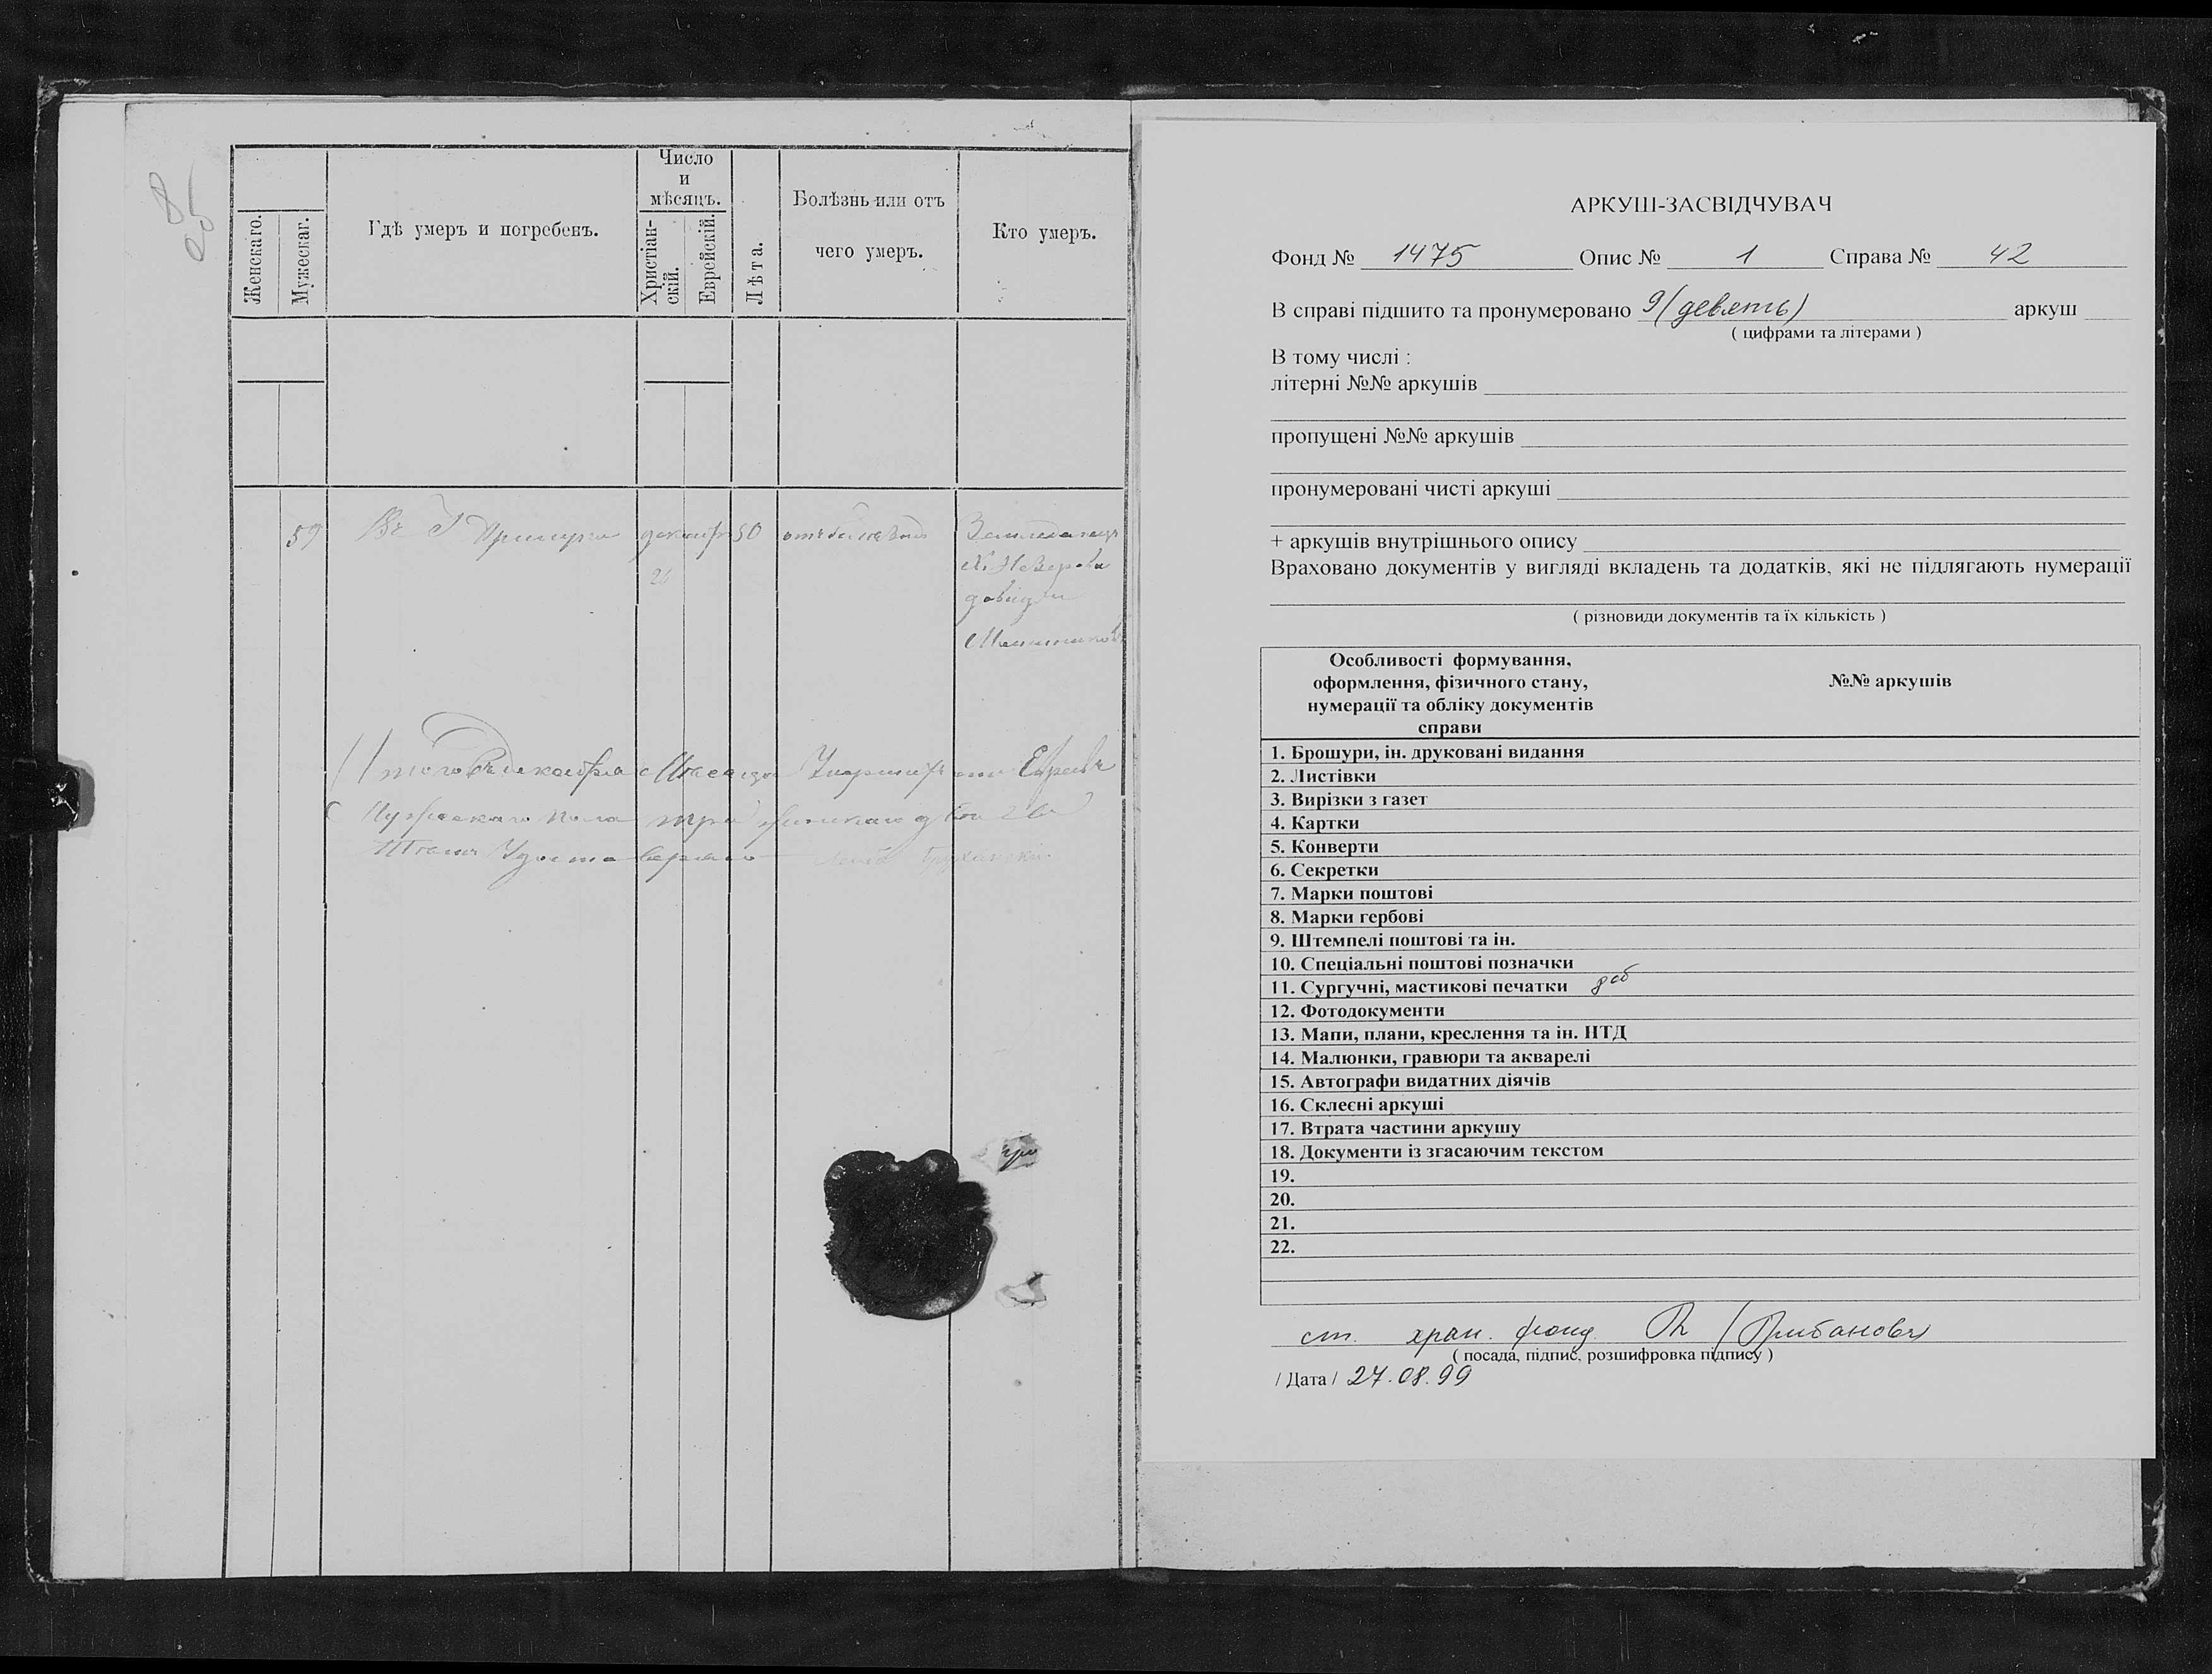 8
Женскаго.
Мужескаг.
Гдѣ умеръ и погребенъ.
Число
и
мѣсяцъ.
Христіан-
скій.
Еврейскій.
Лѣта.
Болѣзнь или отъ
чего умеръ.
Кто умеръ.
59
Въ Г Прилуки
декабр
26
50
Земледелецъ
Итого въ декабра Месяца Умерших Евреевъ
Мужескаго пола три женскаго
АРКУШ-ЗАСВІДЧУВАЧ
Фонд № 1475 Опис № 1 Справа № 42
В справі підшито та пронумеровано 9 (девять) аркуш
( цифрами та літерами )
В тому числі :
літерні №№ аркушів
пропущені №№ аркушів
пронумеровані чисті аркуші
+ аркушів внутрішнього опису
Враховано документів у вигляді вкладень та додатків, які не підлягають нумерації
( різновиди документів та їх кількість )
Особливості формування,
оформлення, фізичного стану,
нумерації та обліку документів
справи
№№ аркушів
1. Брошури, ін. друковані видання
2. Листівки
3. Вирізки з газет
4. Картки
5. Конверти
6. Секретки
7. Марки поштові
8. Марки гербові
9. Штемпелі поштові та ін.
10. Спеціальні поштові позначки
11. Сургучні, мастикові печатки 8 об
12. Фотодокументи
13. Мапи, плани, креслення та ін. НТД
14. Малюнки, гравюри та акварелі
15. Автографи видатних діячів
16. Склеєні аркуші
17. Втрата частини аркушу
18. Документи із згасаючим текстом
19.
20.
21.
22.
ст. хран. фонд.
( посада, підпис, розшифровка підпису )
/ Дата / 27.08.99